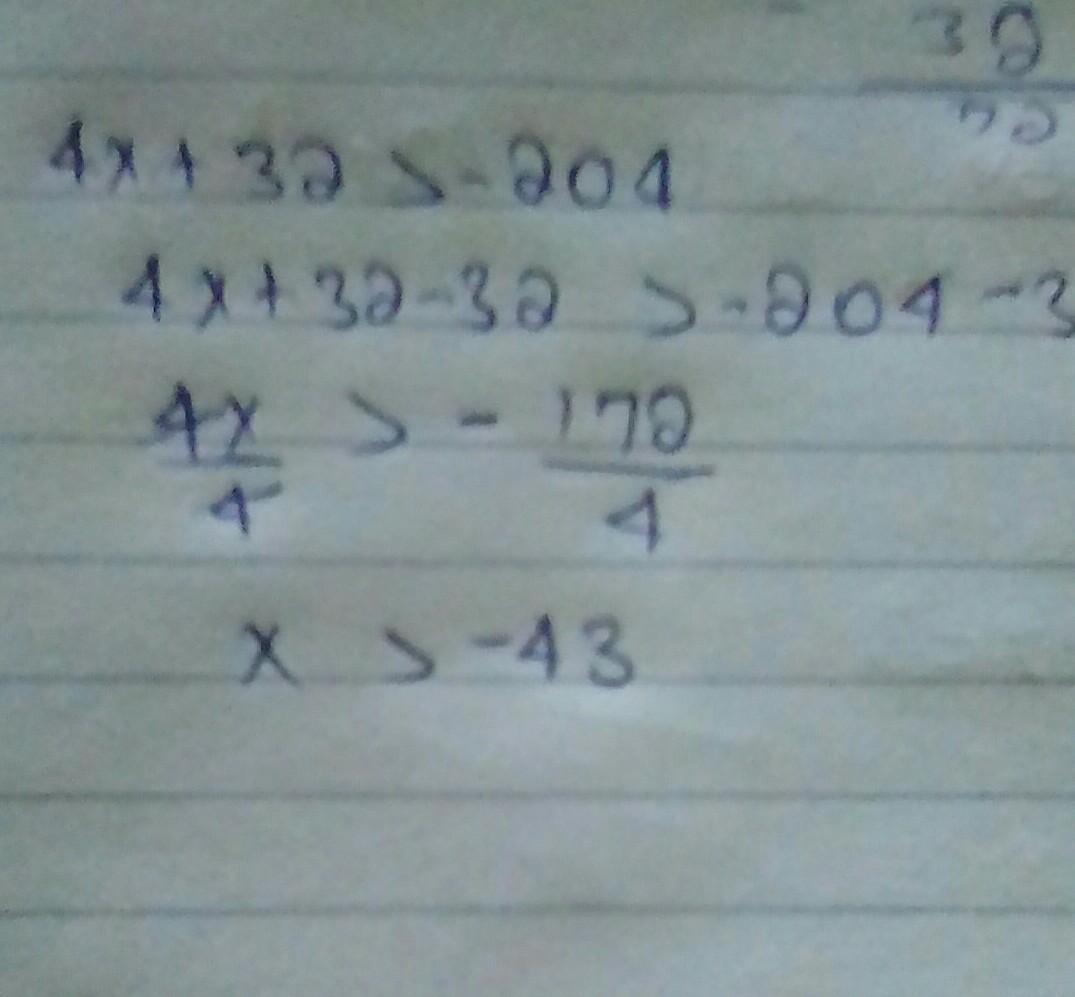 32
4x+32 > -204
4x+32-32 > -204 -3
4x/4 > - 172/4
x > -43